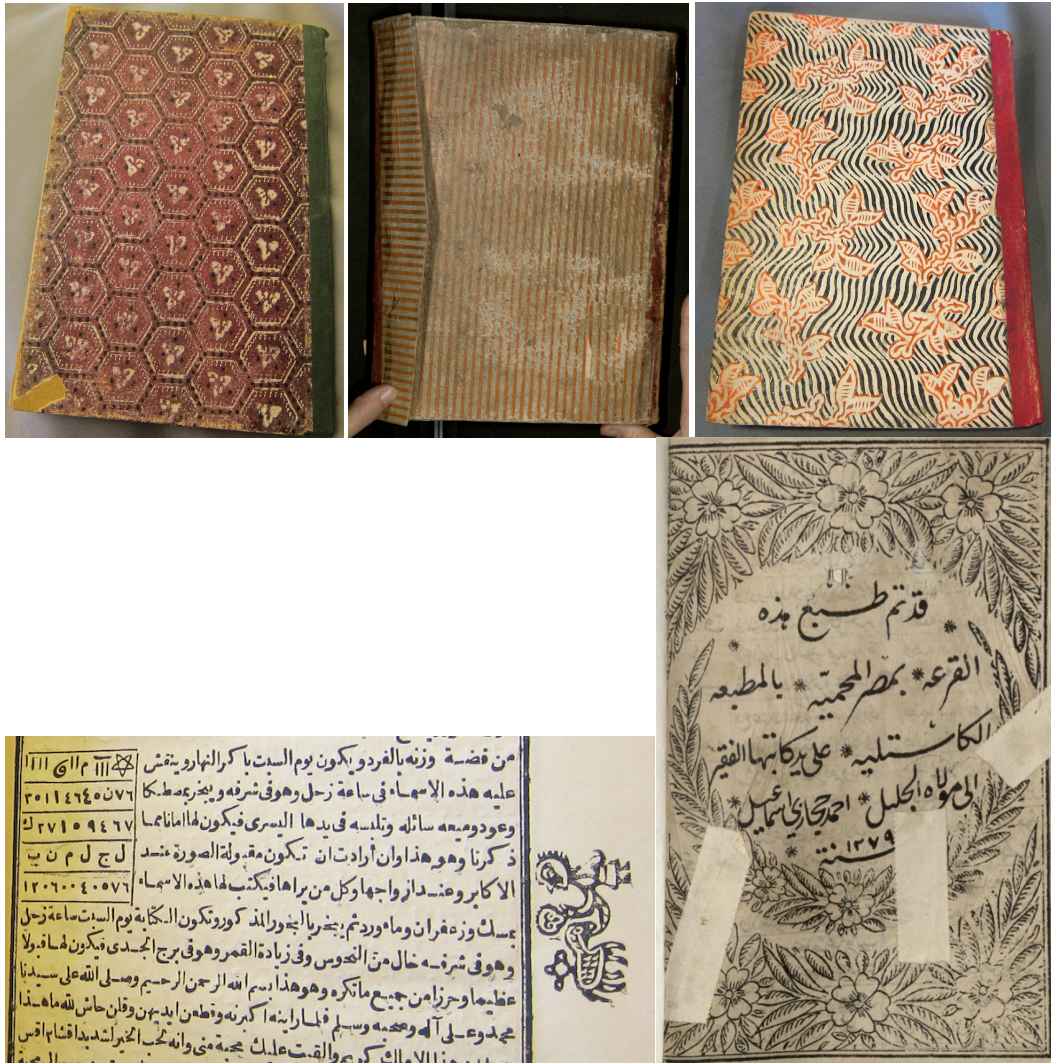 من فضة وزنه بالفرد ويكون يوم السبت باكر النهار وينقش
عليه هذه الاسماء في ساعة زحل وهو في شرفه ويبخر بمصطكا
وعود وميعه سائله وتلبسه في يدها اليسرى فيكون لها امانا مما
ذكرنا وهو هذا وان أرادت ان تكون مقبولة الصورة عند
الاكابر وعند ازواجها وكل من يراها فيكتب لها هذه الاسماء
بمسك وزعفران وماء ورد ثم يبخر بالبخور المذكور وتكون الكتابة يوم السبت ساعة زحل
وهو في شرفه خال من النحوس وفي زيادة القمر وهو في برج الجدى فيكون لها قبولا
عظيما وحرزا من جميع ما تكره وهو هذا بسم الله الرحمن الرحيم وصلى الله على سيدنا
محمد وعلى آله وصحبه وسلم فلما راينه اكبرنه وقطعن ايديهن وقلن حاش لله ما هذا
والقيت عليك محبة منى وانه لحب الخير لشديد
٣٥١١٤٦٤٥ن٧٦
٢٧١٥٩٤٦٧ك
ل ج ل م ن ب
١٢٠٦٠٠٤٠٥٧٦
قد تم طبع هذه
القرعه * بمصر المحميّه * بالمطبعه
الكاستليه * على يد كاتبها الفقير
الى مولاه الجليل * احمد حجازي اسماعيل *
سنة ١٢٧٩